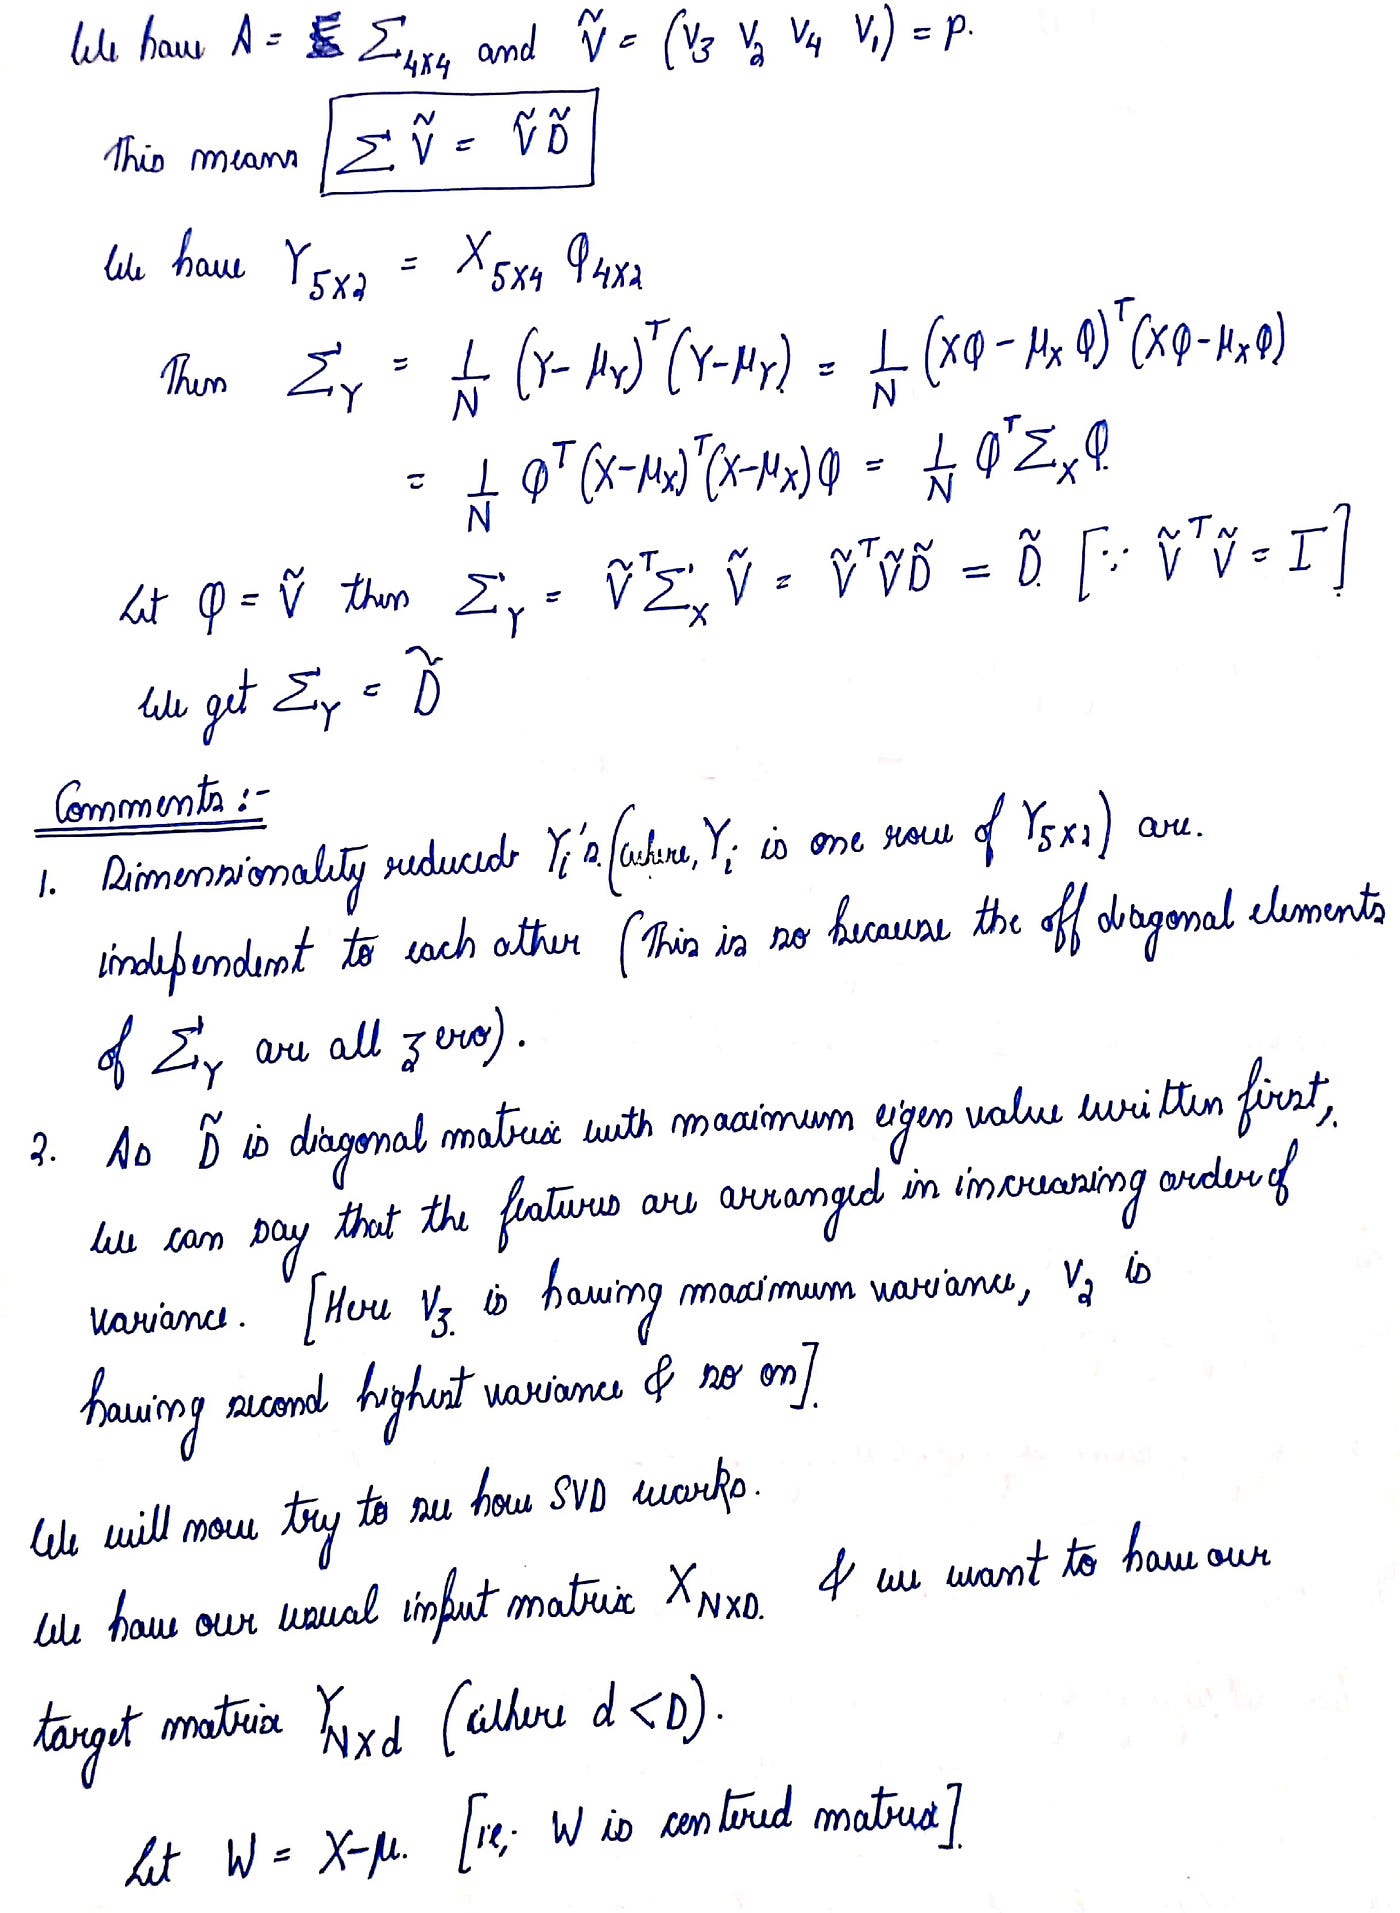 We have A = Σ₄ₓ₄ and Ṽ = (V₃ V₂ V₄ V₁) = P.
This means Σ Ṽ = Ṽ D̃
We have Y₅ₓ₂ = X₅ₓ₄ φ₄ₓ₂
Then Σ_Y = 1/N (Y-μ_Y)ᵀ(Y-μ_Y) = 1/N (Xφ - μ_X φ)ᵀ(Xφ-μ_Xφ)
= 1/N φᵀ(X-μ_X)ᵀ(X-μ_X)φ = 1/N φᵀΣ_Xφ
Let φ = Ṽ then Σ_Y = ṼᵀΣ_X Ṽ = ṼᵀṼD̃ = D̃. [∵ ṼᵀṼ = I]
We get Σ_Y = D̃
Comments :-
1. Dimensionality reduced Yᵢ's (where, Yᵢ is one row of Y₅ₓ₂) are.
independent to each other (This is so because the off diagonal elements
of Σ_Y are all zero).
2. As D̃ is diagonal matrix with maximum eigen value written first,
we can say that the features are arranged in increasing order of
variance. [Here V₃ is having maximum variance, V₂ is
having second highest variance & so on].
We will now try to see how SVD works.
We have our usual input matrix X_NxD. & we want to have our
target matrix Y_Nxd (where d < D).
Let W = X-μ. [ie; W is centered matrix].